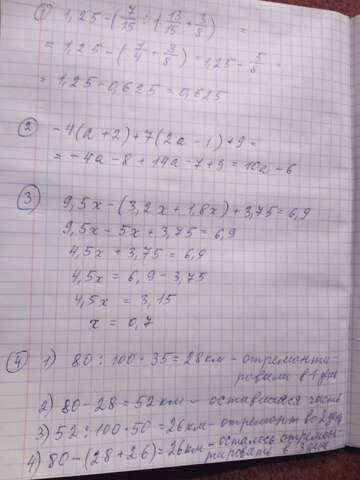 ① 1,25-(7/15 : 1 13/15 + 3/8) =
= 1,25-(1/4 + 3/8) = 1,25 - 5/8 =
= 1,25-0,625 = 0,625
② -4(a+2)+7(2a-1)+9=
= -4a-8+14a-7+9=10a-6
③ 9,5x-(3,2x+1,8x)+3,75=6,9
9,5x-5x+3,75=6,9
4,5x+3,75=6,9
4,5x = 6,9-3,75
4,5x = 3,15
x = 0,7
④ 1) 80:100·35=28км-отремонти-
ровали в 1 день
2) 80-28=52км-оставшаяся часть
3) 52:100·50=26км-отремонт во 2 день
4) 80-(28+26)=26км-осталось отремон-
тировать в 3 день